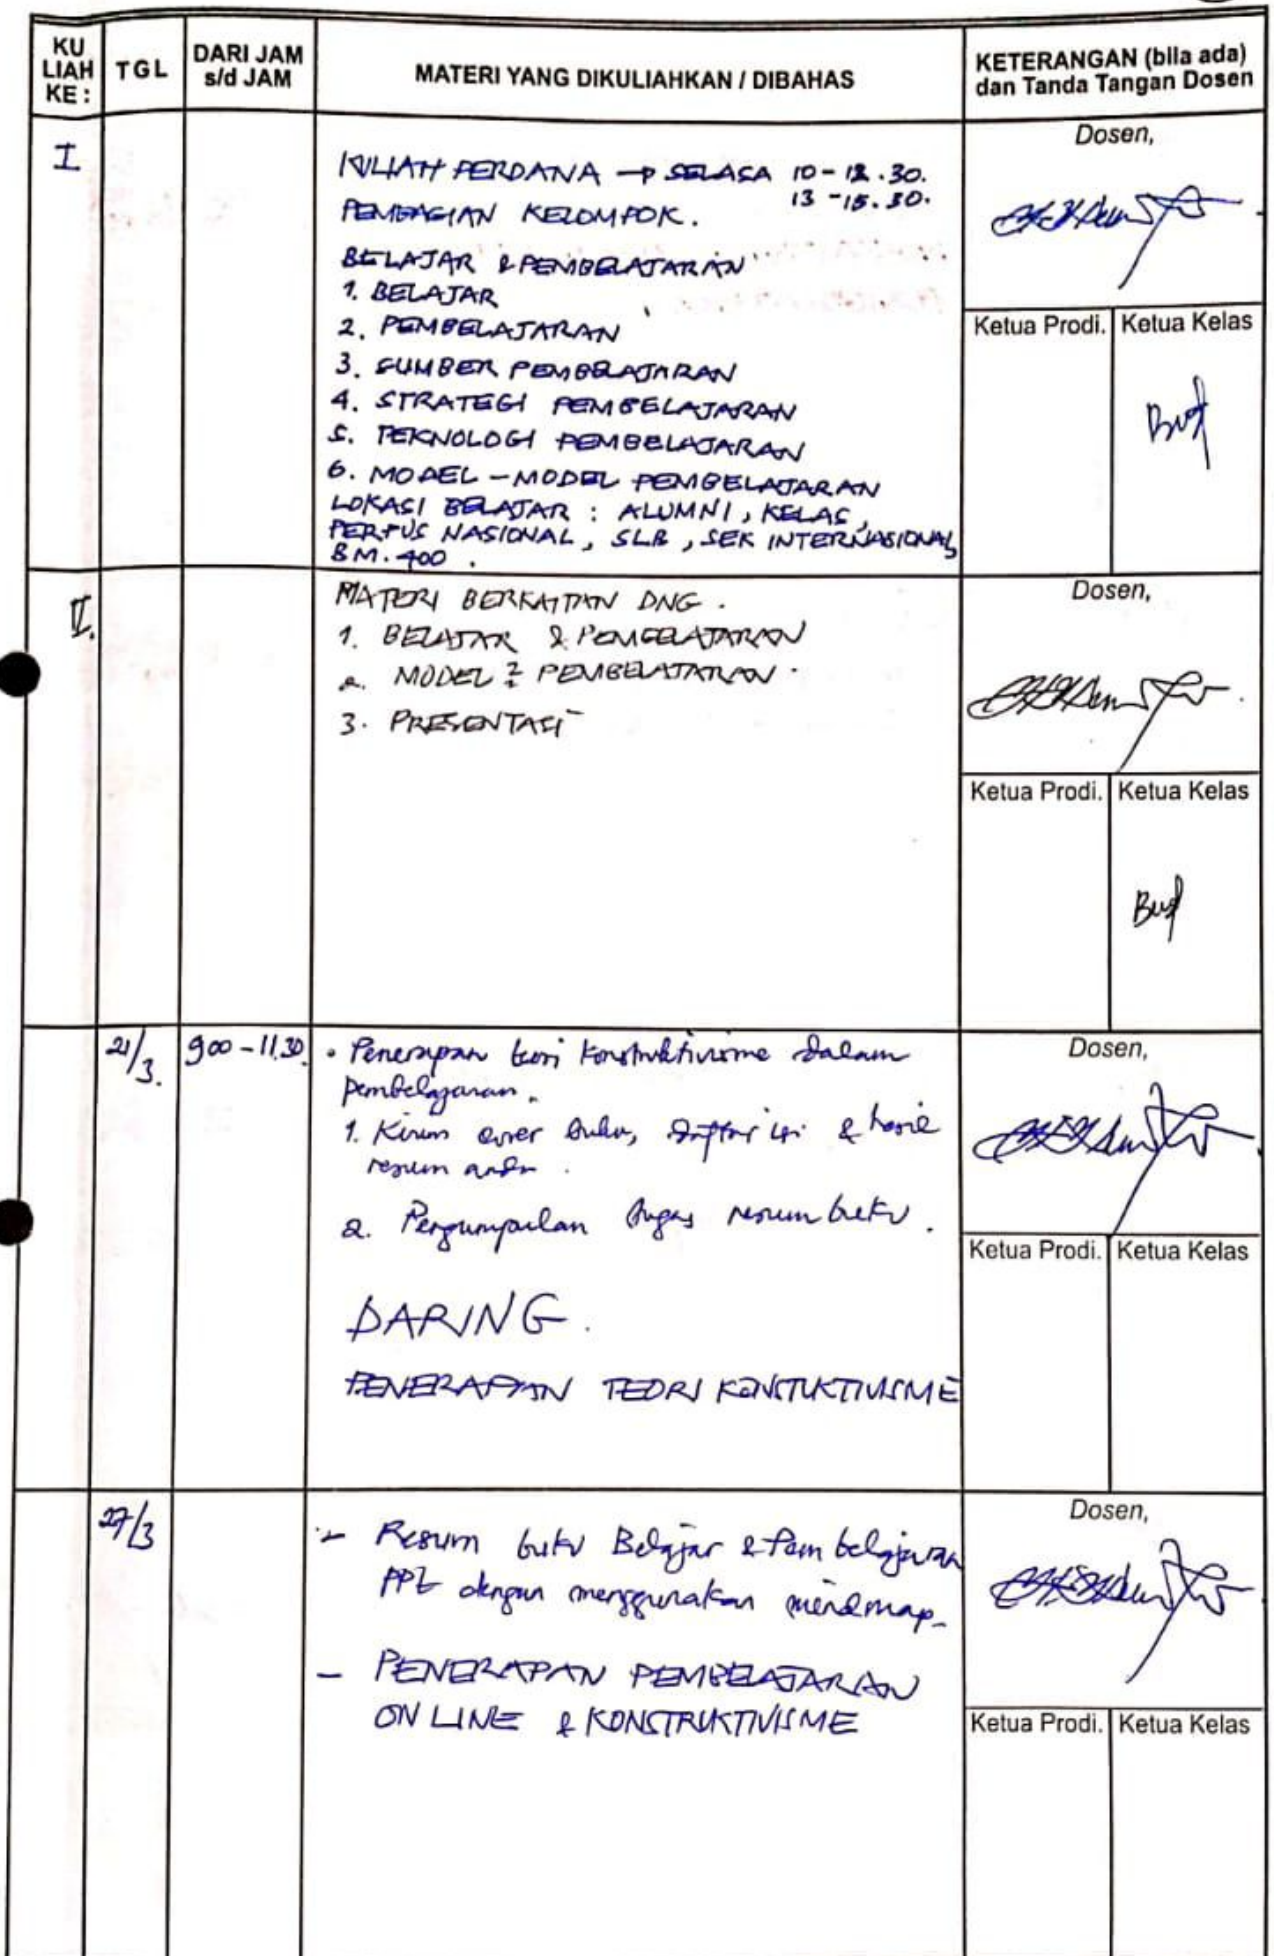 KU LIAH KE :
TGL
DARI JAM s/d JAM
MATERI YANG DIKULIAHKAN / DIBAHAS
KETERANGAN (bila ada) dan Tanda Tangan Dosen
I
KULIAH PERDANA → SELASA 10 - 12.30.
13 - 15.30.
PEMBAGIAN KELOMPOK.
BELAJAR & PEMBELAJARAN
1. BELAJAR
2. PEMBELAJARAN
3. SUMBER PEMBELAJARAN
4. STRATEGI PEMBELAJARAN
5. TEKNOLOGI PEMBELAJARAN
6. MODEL - MODEL PEMBELAJARAN
LOKASI BELAJAR : ALUMNI, KELAS,
PERPUS NASIONAL, SLB, SEK INTERNASIONAL
BM. 400 .
Dosen,
Ketua Prodi.
Ketua Kelas
II.
MATERI BERKAITAN DNG.
1. BELAJAR & PEMBELAJARAN
2. MODEL 2 PEMBELAJARAN.
3. PRESENTASI
Dosen,
Ketua Prodi.
Ketua Kelas
21/3.
9.00 - 11.30
• Penerapan teori Konstruktivisme dalam
pembelajaran.
1. Kirim cover buku, daftar isi & hasil
resum anda.
2. Pengumpulan tugas resum buku.
DARING.
PENERAPAN TEORI KONSTUKTIVISME
Dosen,
Ketua Prodi.
Ketua Kelas
27/3
- Resum buku Belajar & Pembelajaran
PPT dengan menggunakan mindmap-
- PENERAPAN PEMBELAJARAN
ON LINE & KONSTRUKTIVISME
Dosen,
Ketua Prodi.
Ketua Kelas